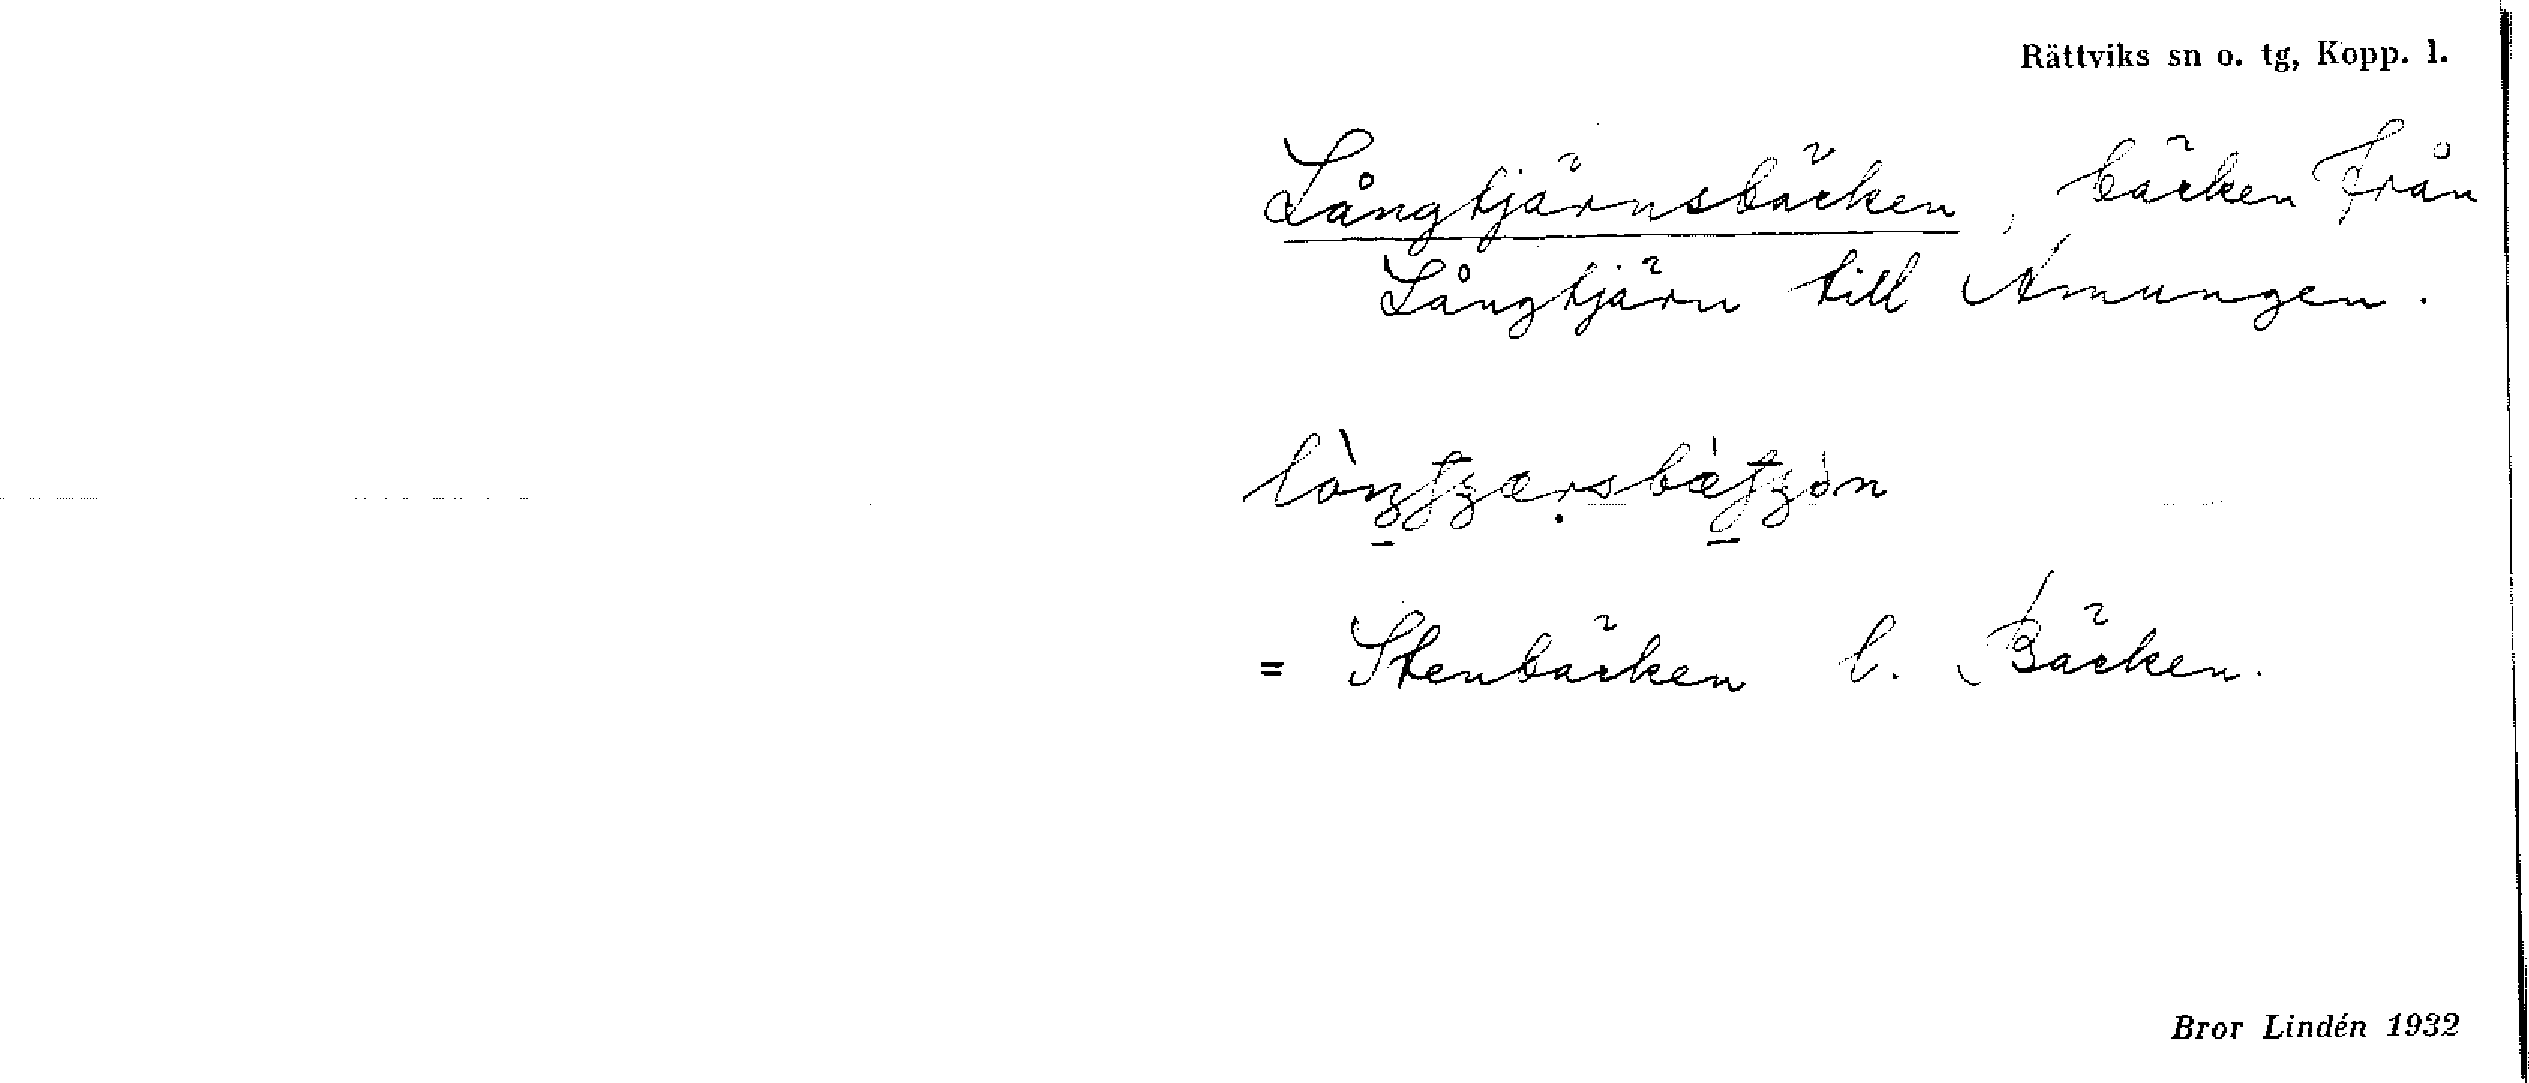 Rättviks sn o. tg, Kopp. l.
Långtjärnsbäcken, bäcken från
Långtjärn till Amungen.
= Stenbäcken l. Bäcken.
Bror Lindén 1932